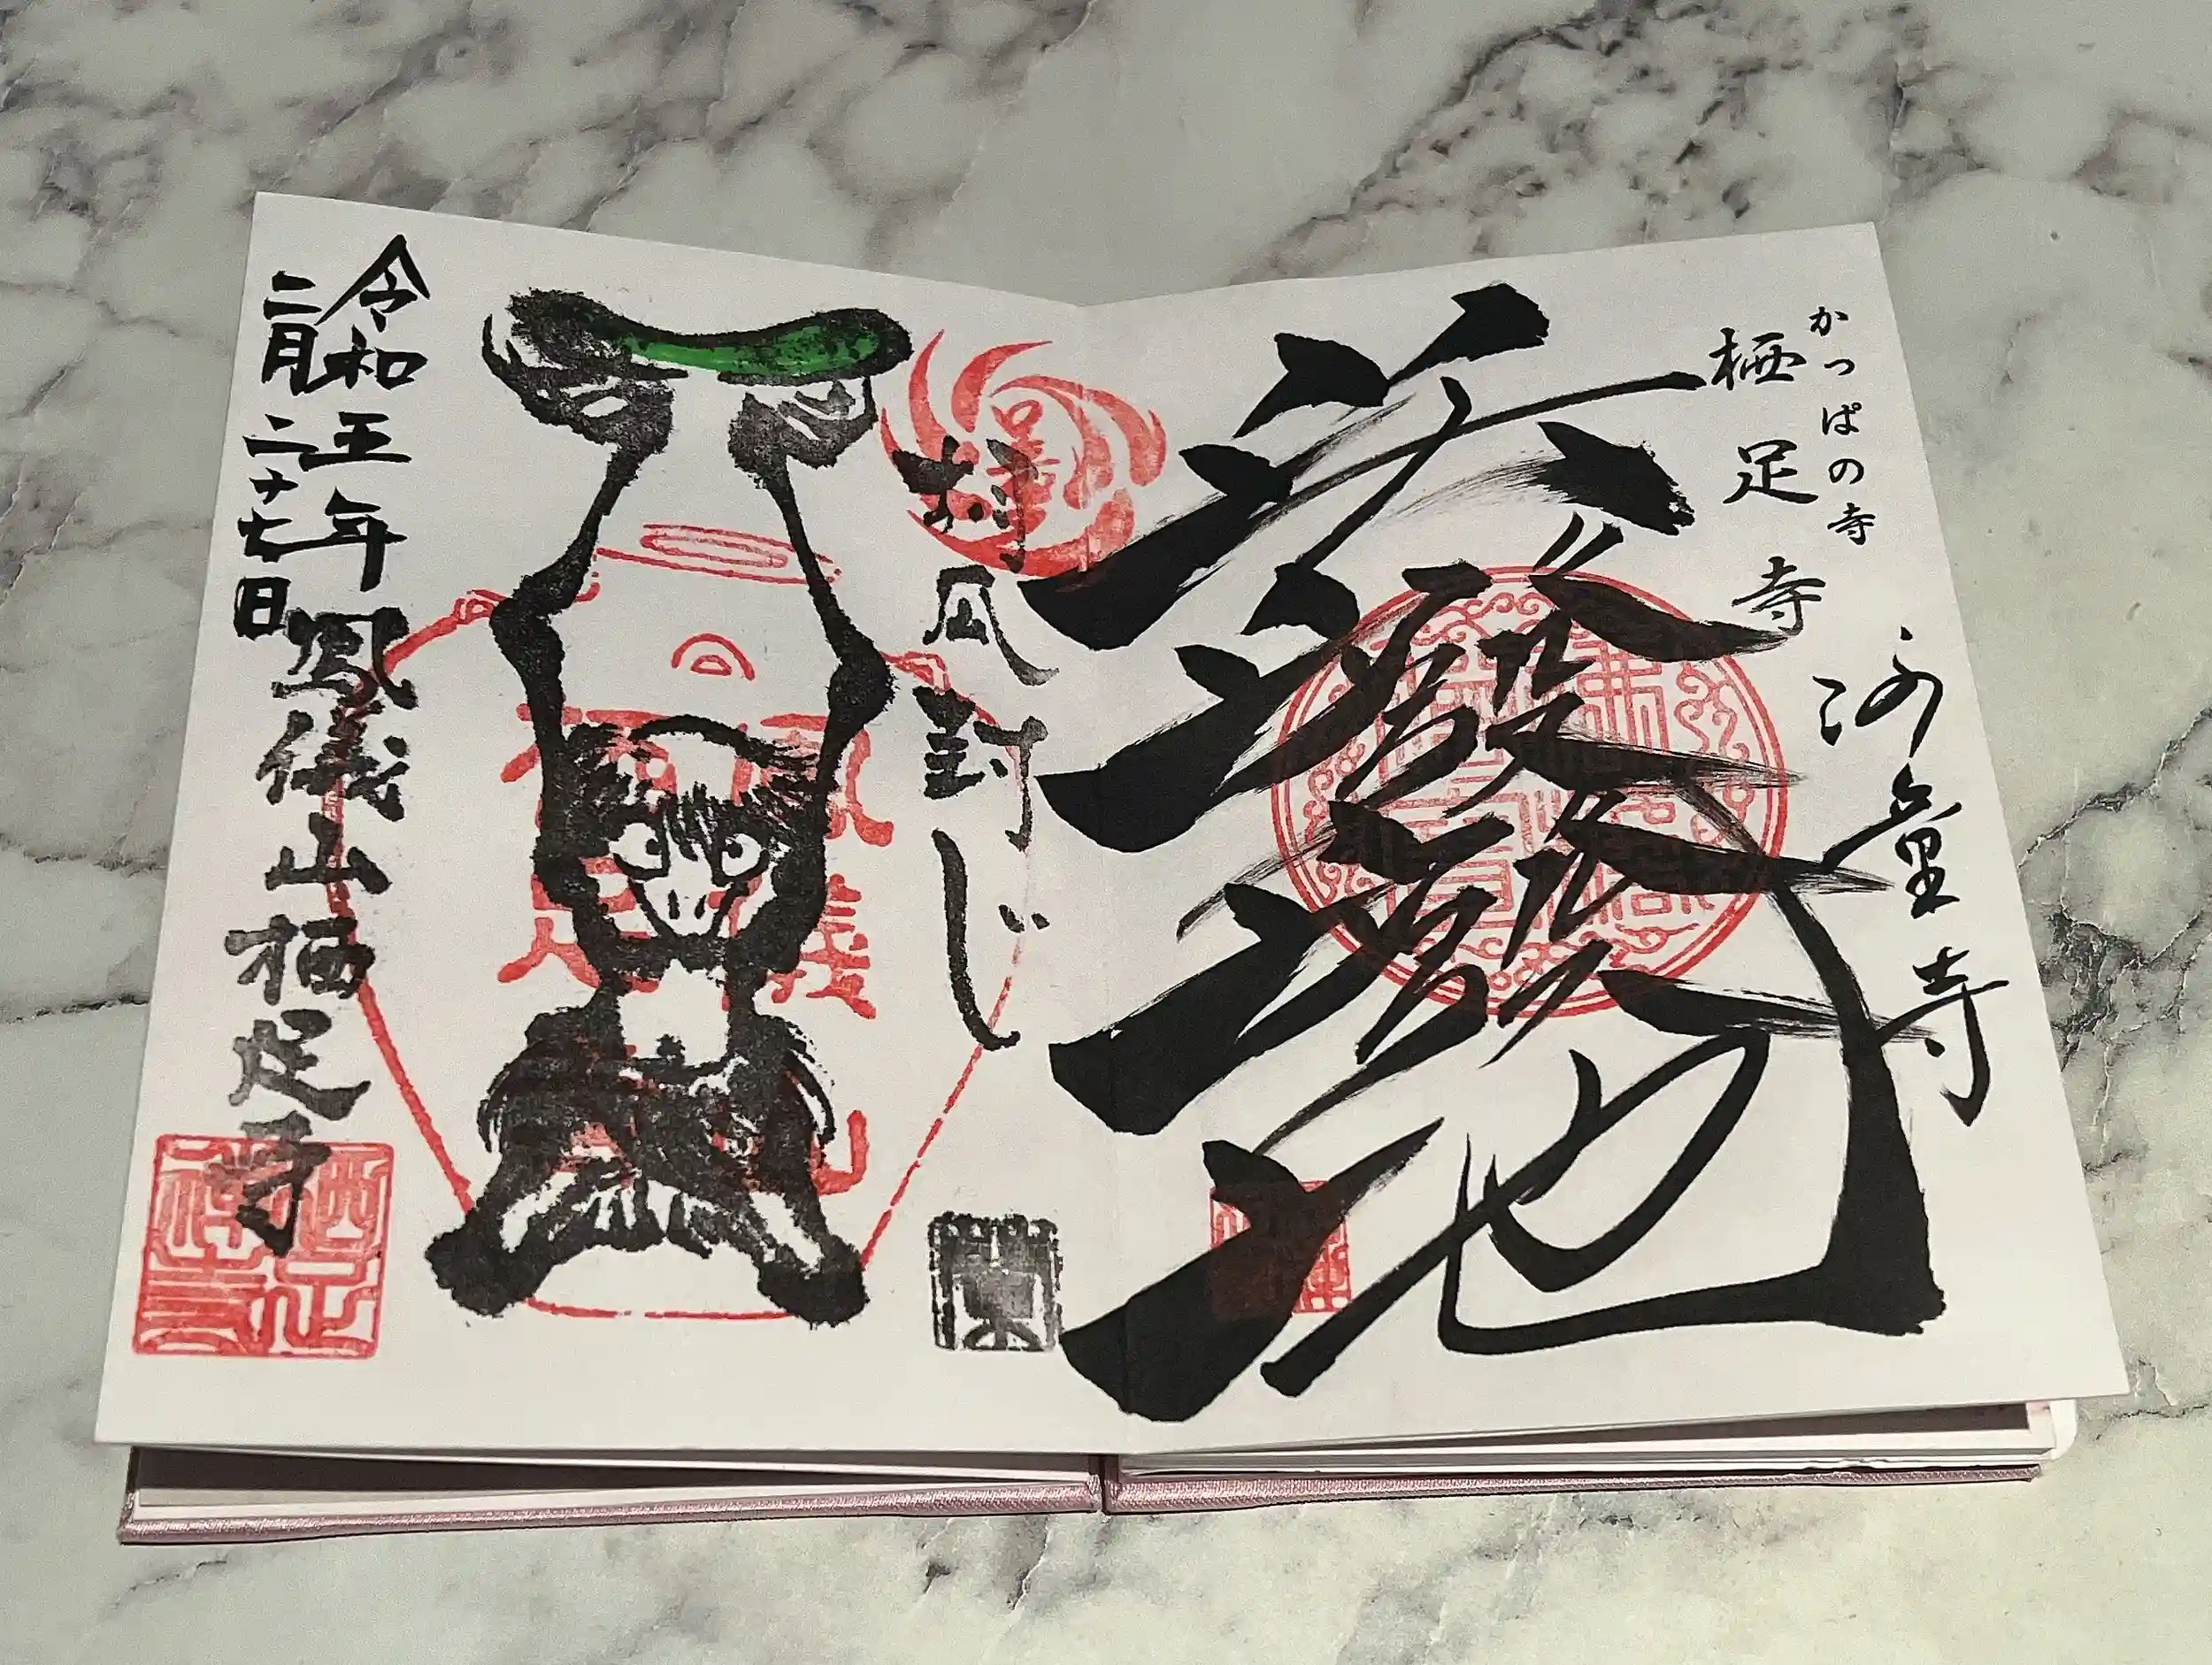 かっぱの寺
栖足寺
河童寺
活潑潑地
胡瓜封じ
令和五年
二月二十七日
鳳儀山栖足寺